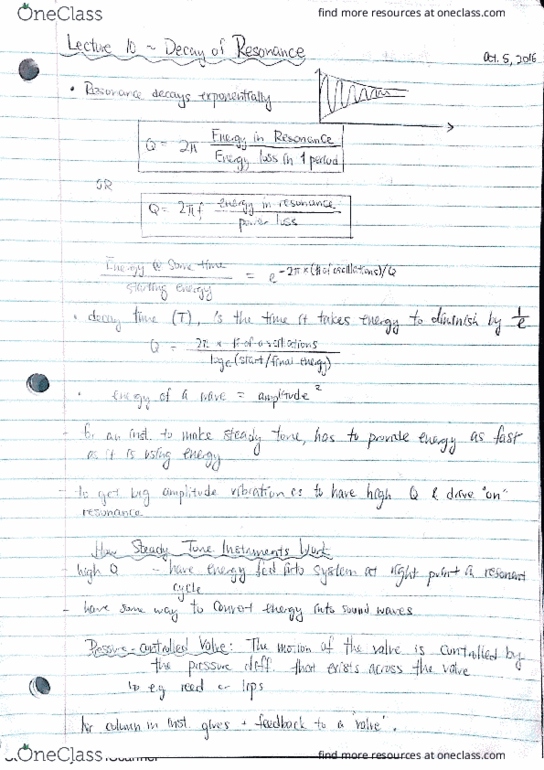 OneClass find more resources at oneclass.com
Lecture 10 ~ Decay of Resonance
Oct. 5, 2016
• Resonance decays exponentially
Q = 2π Energy in Resonance
Energy loss in 1 period
OR
Q = 2πf energy in resonance
power loss
Energy @ some time
starting energy = e^-2π×(# of oscillations)/Q
• decay time (T), is the time it takes energy to diminish by 1/e
Q = 2π × # of oscillations
loge(start/final energy)
• energy of a wave = amplitude²
- for an inst. to make steady tone, has to provide energy as fast
as it is using energy
- to get big amplitude vibration is to have high Q & drive "on"
resonance
How Steady Tone Instruments Work
high Q - have energy fed into system at right point in resonant
cycle
- have some way to convert energy into sound waves
Pressure-controlled Valve: The motion of the valve is controlled by
the pressure diff that exists across the valve
↳ e.g reed or lips
Air column in inst. gives + feedback to a "valve".
OneClass find more resources at oneclass.com